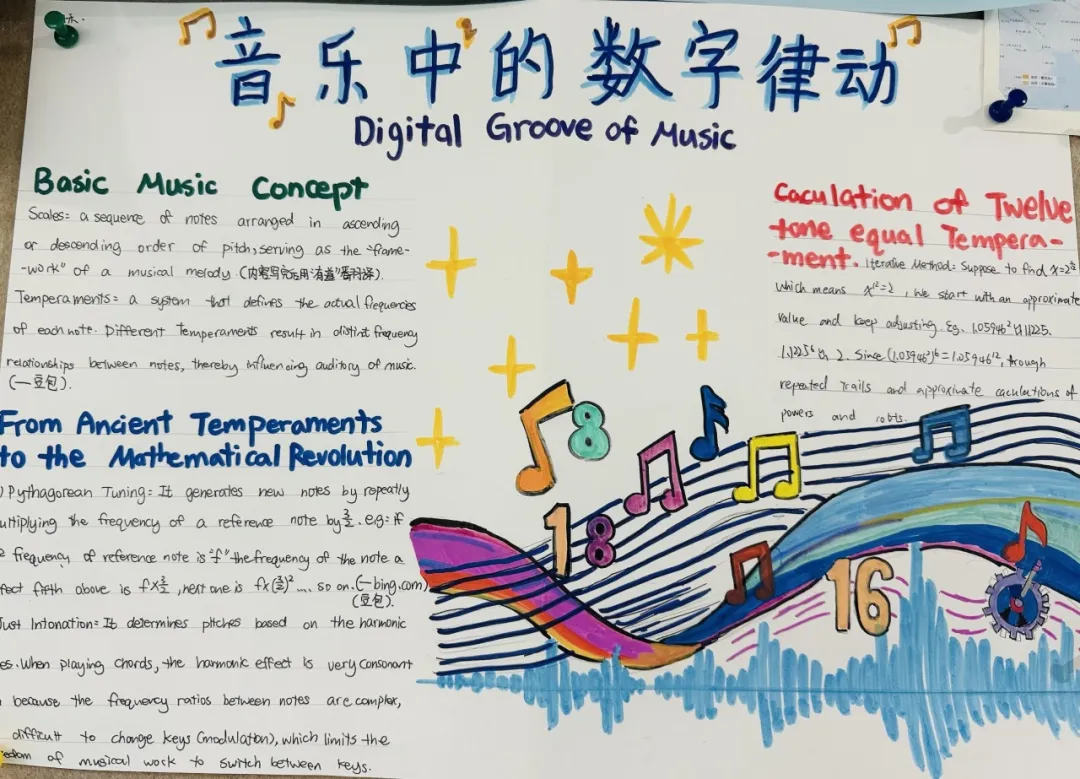 音乐中的数字律动
Digital Groove of Music
Basic Music Concept
Scales= a sequence of notes arranged in ascending
or descending order of pitch, serving as the "frame-
-work" of a musical melody (内容写完后用"有道"翻译).
Temperaments= a system that defines the actual frequencies
of each note. Different Temperaments result in distinct frequency
relationships between notes, thereby influencing auditory of music.
(一豆包).
From Ancient Temperaments
to the Mathematical Revolution
) Pythagorean Tuning= It generates new notes by repeatly
ultiplying the frequency of a reference note by 3/2. e.g: if
frequency of reference note is "f" the frequency of the note a
fect fifth above is f×3/2, next one is f×(3/2)² .... so on. (一bing.com)
(豆包).
Just Intonation= It determines pitches based on the harmonic
es. When playing chords, the harmonic effect is very consonant
because the frequency ratios between notes are complex,
difficult to change keys (modulation), which limits the
eedom of musical work to switch between keys.
Caculation of Twelve
tone equal Tempera-
-ment.
Iterative Method= Suppose to find x=2
which means x¹²=2, We start with an approximate
value and keep adjusting. Eg, 1.05946² ≈ 1.1225.
1.1225⁶ ≈ 2. Since (1.05946²)⁶ = 1.05946¹², through
repeated trails and approximate caculations of
powers and roots.
8
18
16